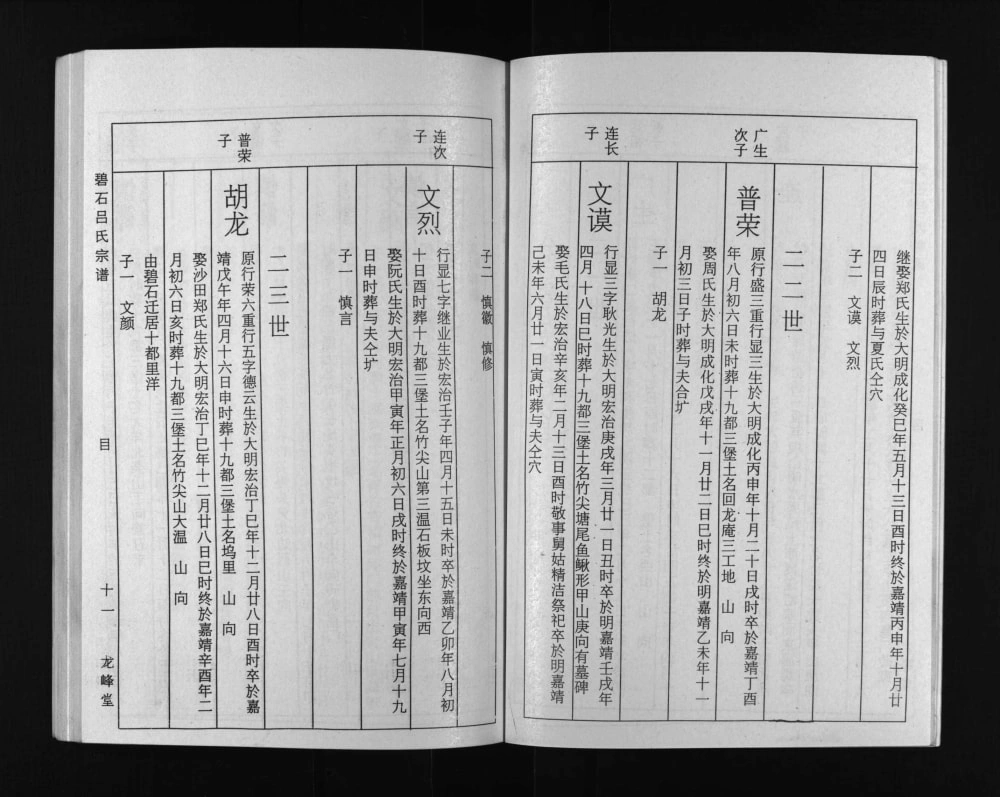 继娶郑氏生於大明成化癸巳年五月十三日酉时终於嘉靖丙申年十月廿
四日辰时葬与夏氏仝穴
子二　文谟　文烈
二二世
广生
次子
普荣
原行盛三重行显三生於大明成化丙申年十月二十日戌时卒於嘉靖丁酉
年八月初六日未时葬十九都三堡土名回龙庵三工地　山　向
娶周氏生於大明成化戊戌年十一月廿二日巳时终於明嘉靖乙未年十一
月初三日子时葬与夫合圹
子一　胡龙
连长
子
文谟
行显三字耿光生於大明宏治庚戌年三月廿一日丑时卒於明嘉靖壬戌年
四月十八日巳时葬十九都三堡土名竹尖塘尾鱼鳅形甲山庚向有墓碑
娶毛氏生於宏治辛亥年二月十三日酉时敬事舅姑精洁祭祀卒於明嘉靖
己未年六月廿一日寅时葬与夫仝穴
子二　慎徽　慎修
连次
子
文烈
行显七字继业生於宏治壬子年四月十五日未时卒於嘉靖乙卯年八月初
十日酉时葬十九都三堡土名竹尖山第三温石板坟坐东向西
娶阮氏生於大明宏治甲寅年正月初六日戌时终於嘉靖甲寅年七月十九
日申时葬与夫仝圹
子一　慎言
二三世
普荣
子
胡龙
原行荣六重行五字德云生於大明宏治丁巳年十二月廿八日酉时卒於嘉
靖戊午年四月十六日申时葬十九都三堡土名坞里　山　向
娶沙田郑氏生於大明宏治丁巳年十二月廿八日巳时终於嘉靖辛酉年二
月初六日亥时葬十九都三堡土名竹尖山大温　山　向
由碧石迁居十都里洋
子一　文颜
碧石吕氏宗谱
目
十一
龙峰堂